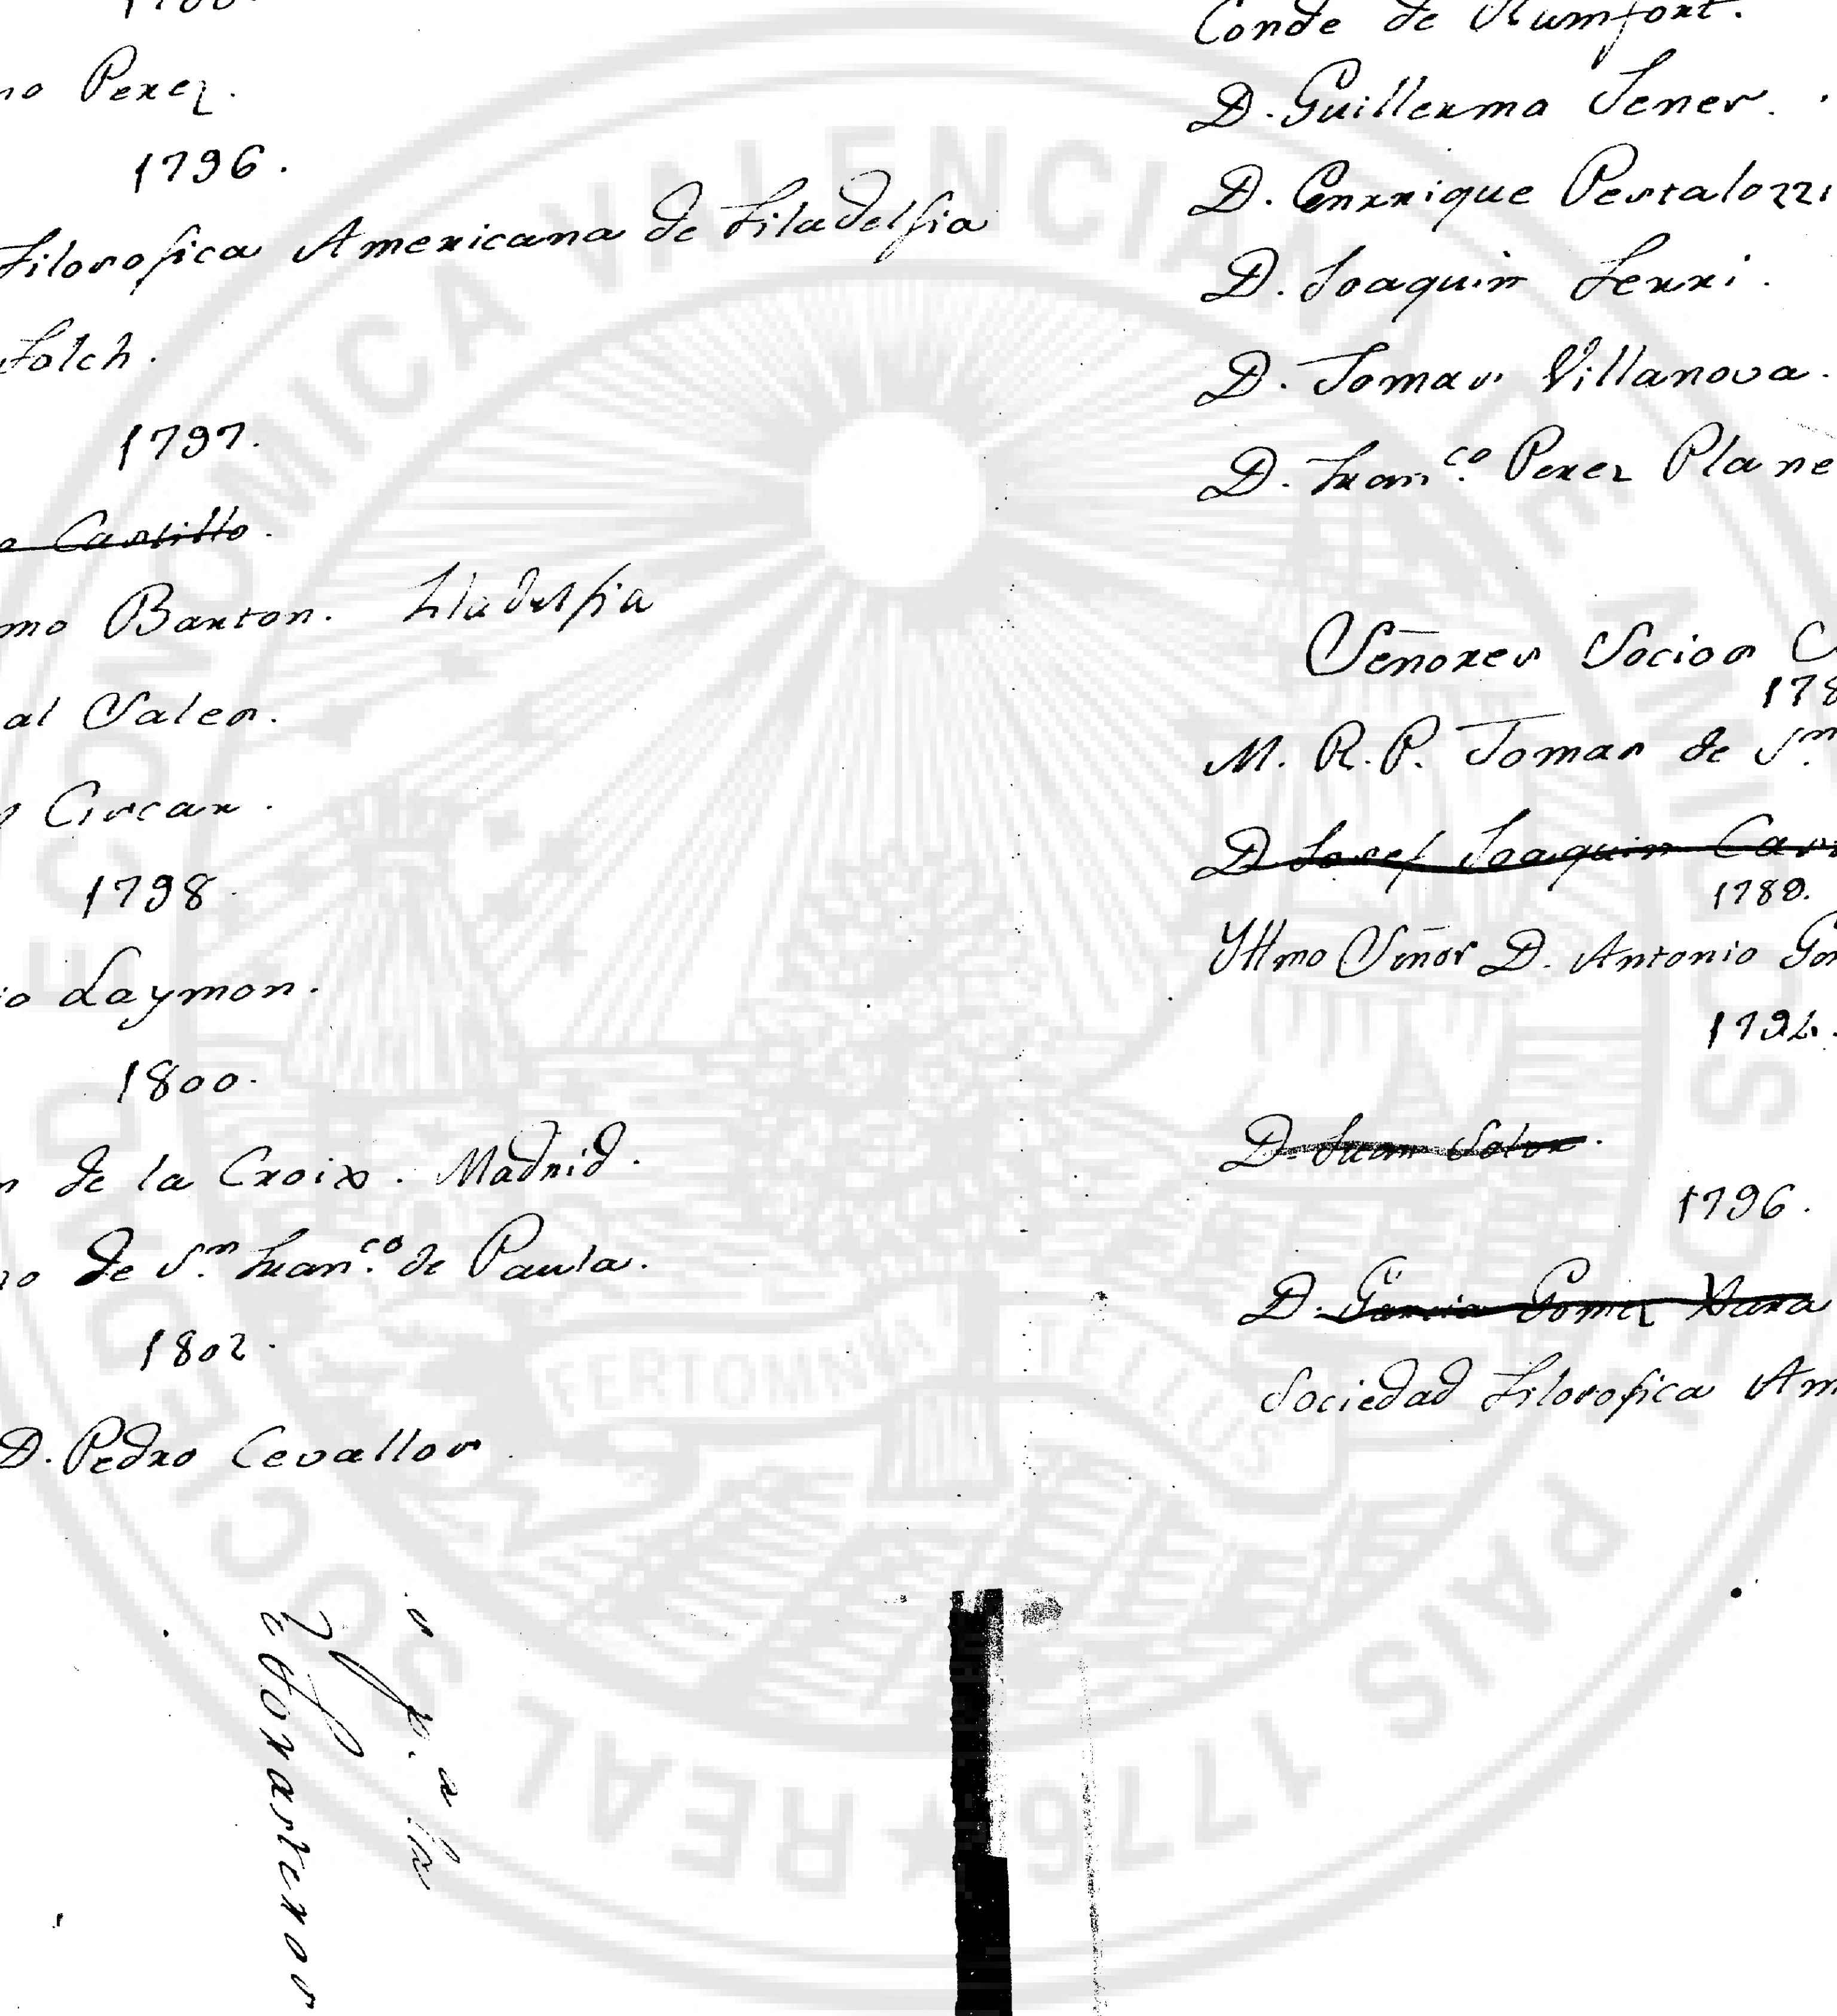 no Perez.
1796.
Filosofica Americana de Filadelfia
Folch.
1797.
o Castillo.
mo Barton. Filadelfia
al Sales.
Ciscar.
1798.
io Laymon.
1800.
n de la Croix. Madrid.
no de Sn. Franco. de Paula.
1802.
D. Pedro Cevallos
Conde de Rumfort.
D. Guillermo Jener.
D. Enrrique Pestalozzi
D. Joaquin Ferri.
D. Tomas Villanova.
D. Franco. Perez Plane
Señores Socios C
178
M. R. P. Tomas de Sn.
D. Josef Joaquin Cas
1789.
Yllmo Señor D. Antonio Go
1794.
D. Juan
1796.
D. Garcia Gomez Xara
Sociedad Filosofica Am
REAL SOCIEDAD ECONOMICA VALENCIANA DE AMIGOS DEL PAIS 1776